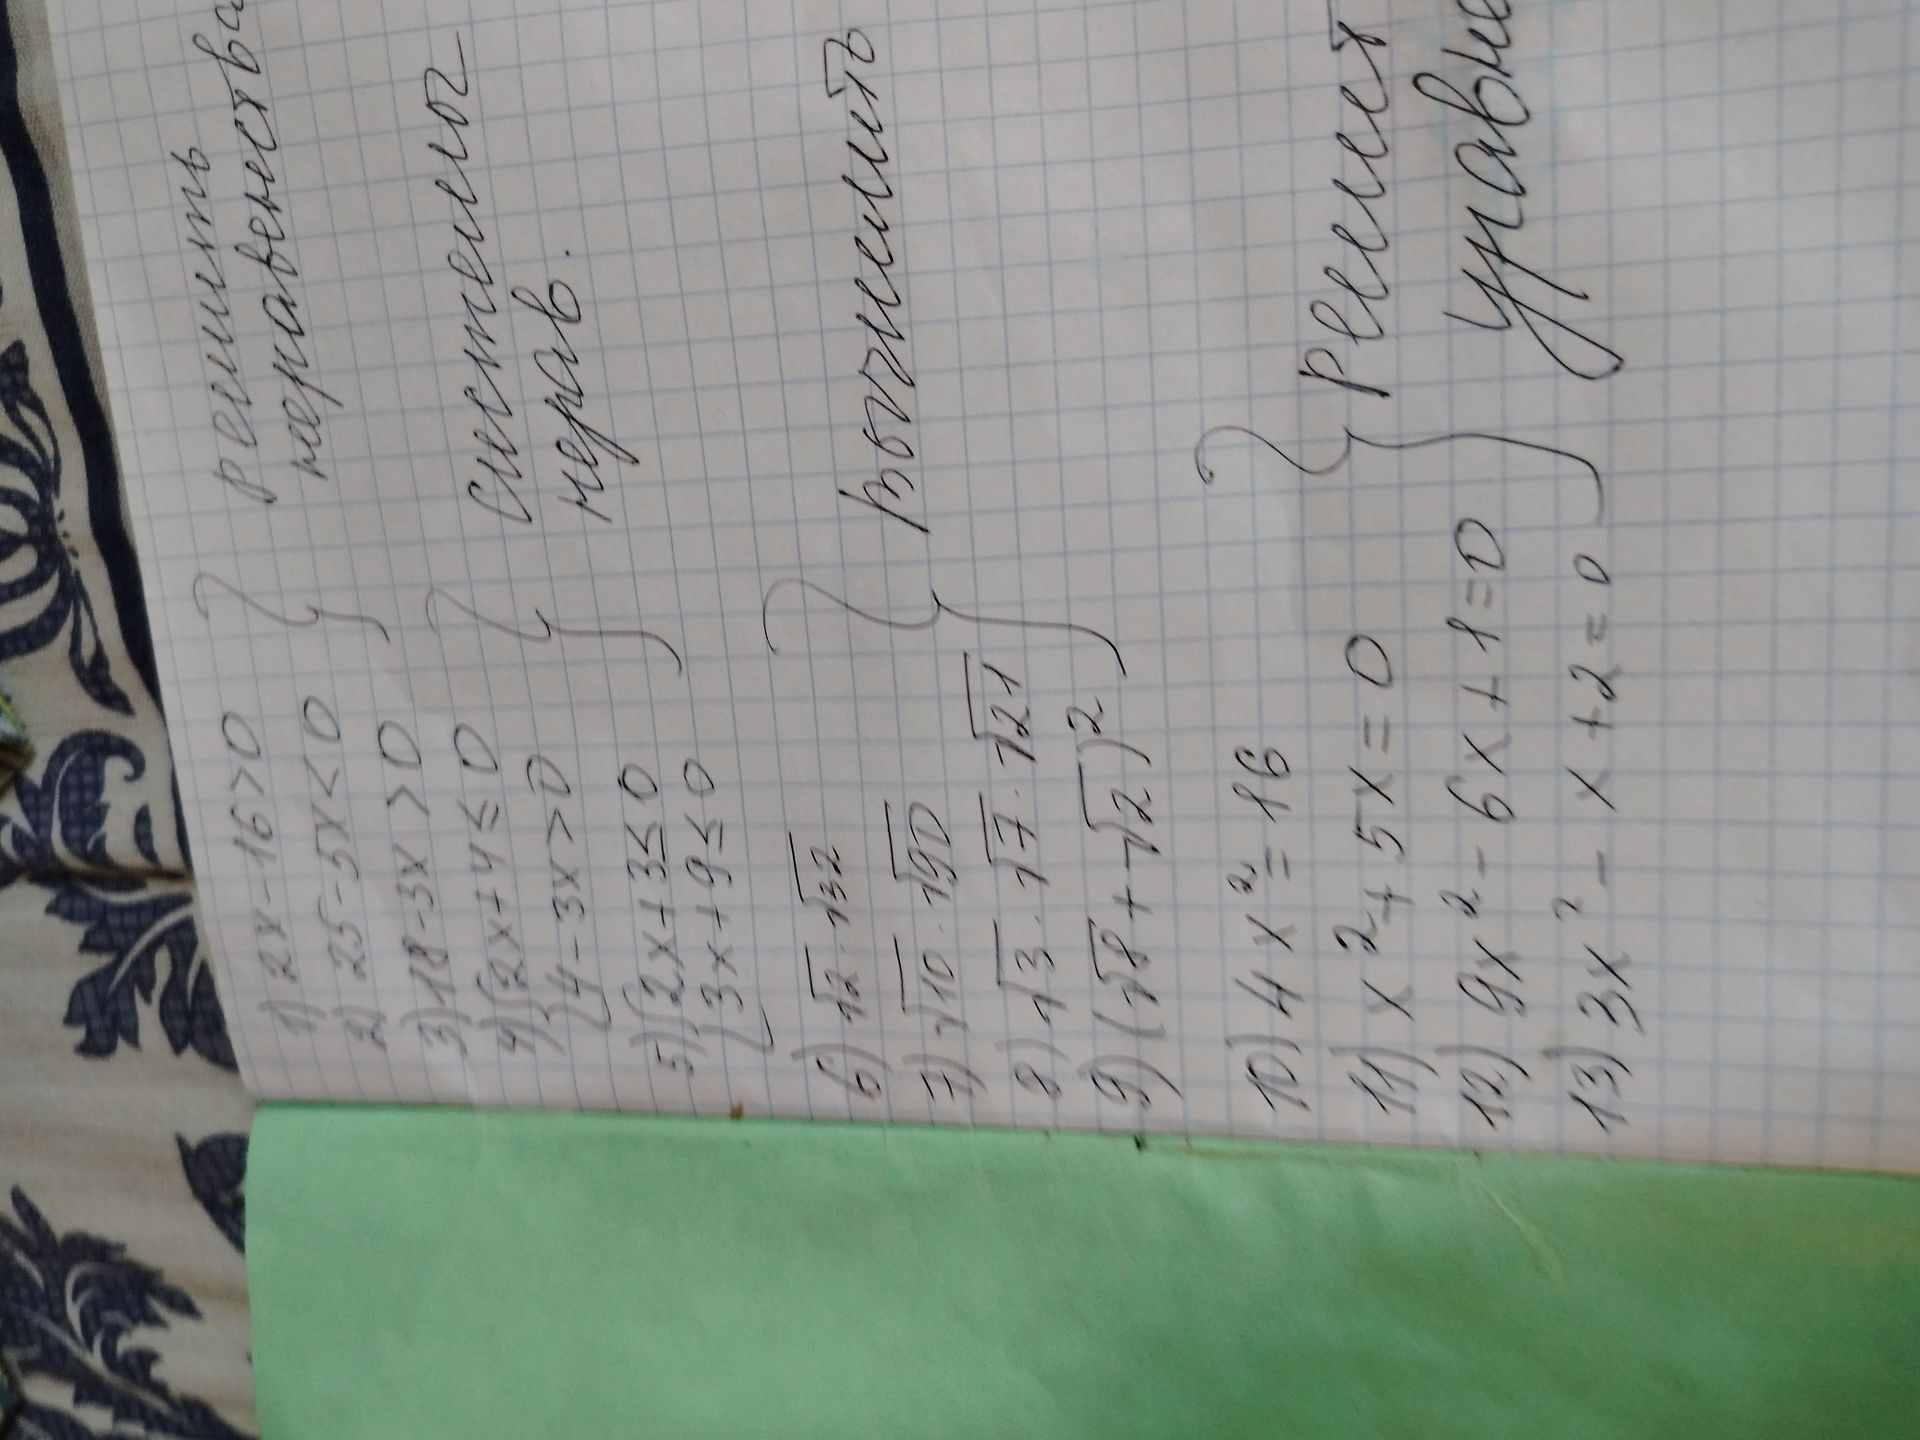 1) 2x-16>0
2) 25-5x<0
Решить
неравенства
3) 18-3x>0
4) {2x+4≤0
{4-3x>0
5) {2x+3≤0
{3x+9≤0
Системы
нерав.
6) √12·√32
7) √10·√90
8) √3·√7·√21
9) (√8+√2)²
Вычислить
10) 4x²=16
11) x²+5x=0
12) 9x²-6x+1=0
13) 3x²-x+2=0
Решит
уравне